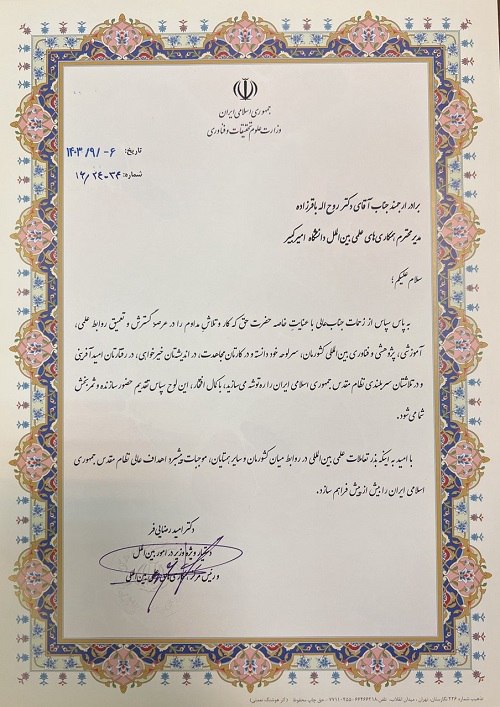 جمهوری اسلامی ایران
وزارت علوم تحقیقات و فناوری
تاریخ: ۱۴۰۳/۹/۰۶
شماره: ۱۶/۲۴۰۳۴
برادر ارجمند جناب آقای دکتر روح اله باقرزاده
مدیر محترم همکاری‌های علمی بین‌الملل دانشگاه امیرکبیر
سلام علیکم؛
به پاس سپاس از زحمات جناب‌عالی با عنایت خاصه حضرت حق که کار و تلاش مداوم را در عرصه گسترش و تعمیق روابط علمی،
آموزشی، پژوهشی و فناوری بین‌المللی کشورمان، سرلوحه خود دانسته و در کارتان مجاهدت، در اندیشتان خیرخواهی، در رفتارتان امیدآفرینی
و در تلاشتان سربلندی نظام مقدس جمهوری اسلامی ایران را ره‌توشه می‌سازید، با کمال افتخار، این لوح سپاس تقدیم حضور سازنده و ثمربخش
شما می‌شود.
با امید به اینکه بذر تعاملات علمی بین‌المللی در روابط میان کشورمان و سایر همتایان، موجبات پیشبرد اهداف عالی نظام مقدس جمهوری
اسلامی ایران را بیش از پیش فراهم سازد.
دکتر امید رضایی‌فر
دستیار ویژه وزیر در امور بین‌الملل
و رئیس مرکز همکاری‌های علمی بین‌المللی
تذهیب شماره ۲۲۴ نگارستان، تهران، میدان انقلاب، تلفن ۶۶۴۶۶۲۱۸